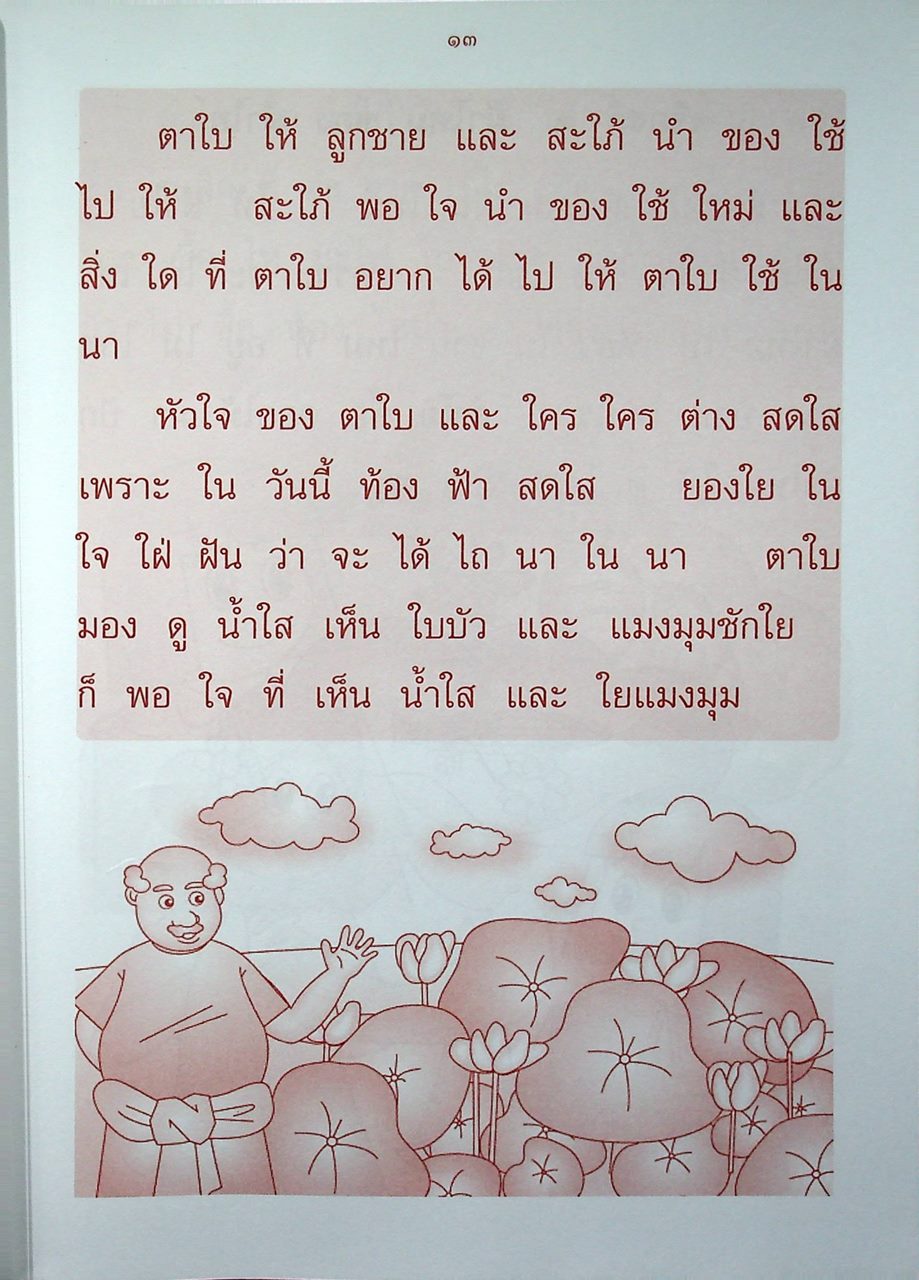 ๑๓
ตาใบ ให้ ลูกชาย และ สะใภ้ นำ ของ ใช้
ไป ให้ สะใภ้ พอ ใจ นำ ของ ใช้ ใหม่ และ
สิ่ง ใด ที่ ตาใบ อยาก ได้ ไป ให้ ตาใบ ใช้ ใน
นา
หัวใจ ของ ตาใบ และ ใคร ใคร ต่าง สดใส
เพราะ ใน วันนี้ ท้อง ฟ้า สดใส ยองใย ใน
ใจ ใฝ่ ฝัน ว่า จะ ได้ ไถ นา ใน นา ตาใบ
มอง ดู น้ำใส เห็น ใบบัว และ แมงมุมชักใย
ก็ พอ ใจ ที่ เห็น น้ำใส และ ใยแมงมุม